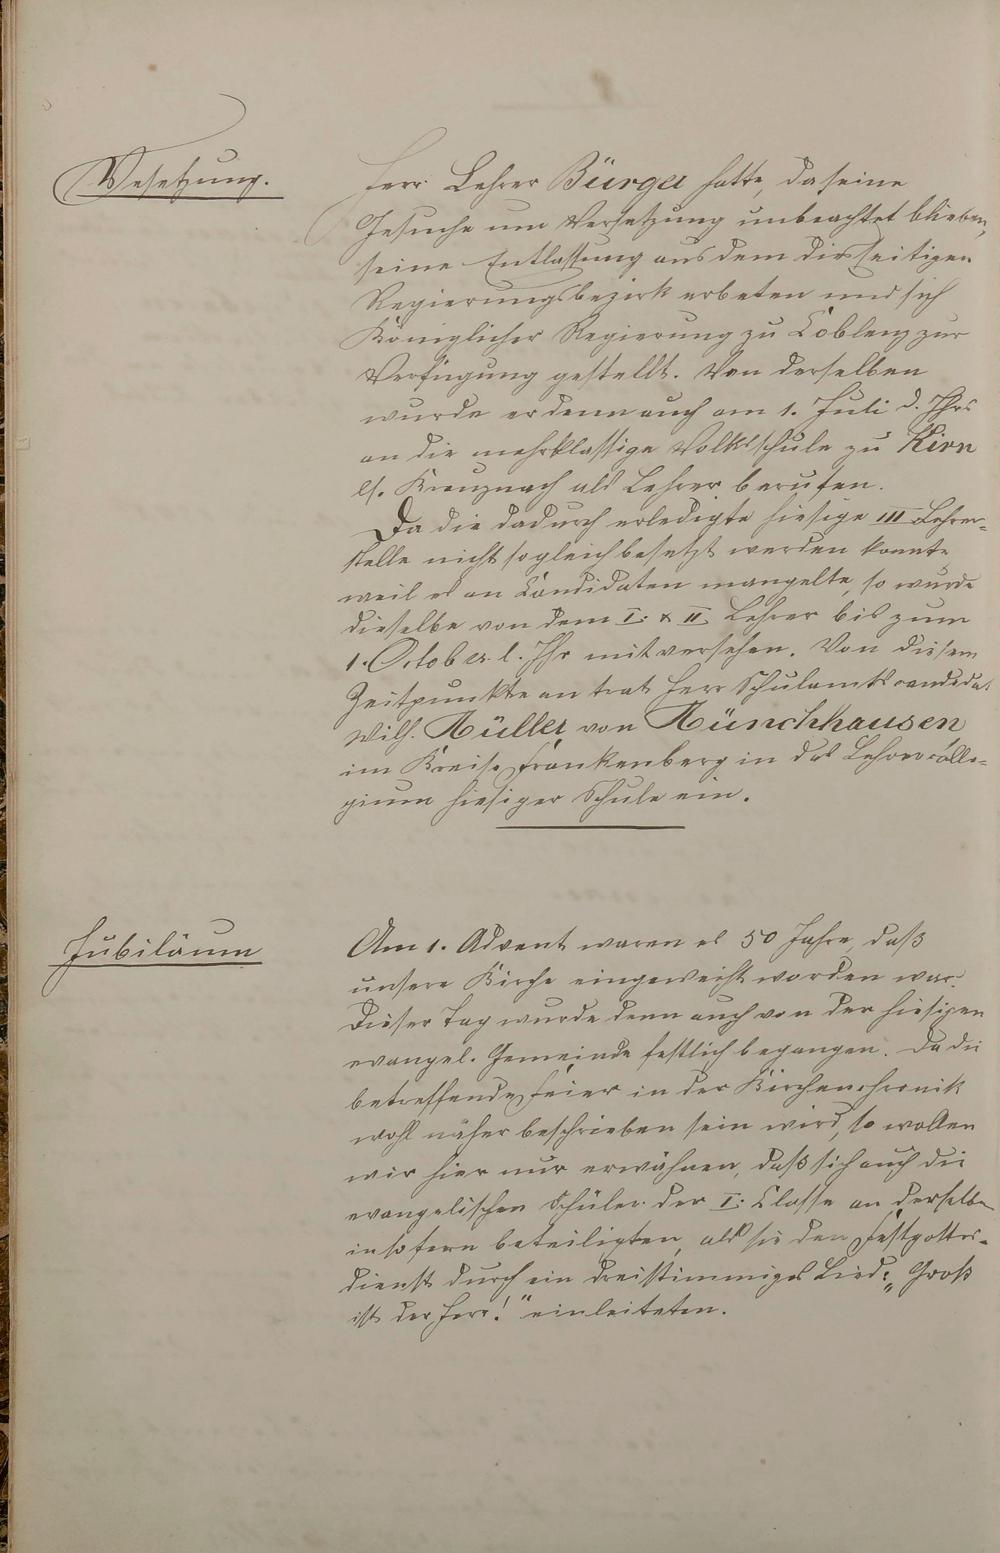 Vesetzung.
Herr Lehrer Bürger hatte, da seine
Gesuche um Versetzung unbeachtet blieben,
seine Entlassung aus dem diesseitigen
Regierungsbezirk erbeten und sich
Königlicher Regierung zu Coblenz zur
Verfügung gestellt. Von derselben
wurde er denn auch am 1. Juli d. Jhrs
an die mehrklassige Volksschule zu Kirn
Kreuznach als Lehrer berufen.
Da die dadurch erledigte hiesige III Lehrer-
stelle nicht sogleich besetzt werden konnte
weil es an Candidaten mangelte, so wurde
dieselbe von dem I. & II. Lehrer bis zum
1. October l. Jhr mitversehen. Von diesem
Zeitpunkte an trat Herr Schulamtscandidat
Wilh. Müller von Münchhausen
im Kreise Frankenberg in das Lehrercolle-
gium hiesiger Schule ein.
Jubiläum
Am 1. Advent waren es 50 Jahre, daß
unsere Kirche eingeweiht worden war.
Dieser Tag wurde denn auch von der hiesigen
evangel. Gemeinde festlich begangen. Da die
betreffende Feier in der Kirchenchronik
wohl näher beschrieben sein wird, so wollen
wir hier nur erwähnen, daß sich auch die
evangelischen Schüler der I. Classe an derselben
insofern beteiligten, als sie den Festgottes-
dienst durch ein dreistimmiges Lied: „Groß
ist der Herr!" einleiteten.